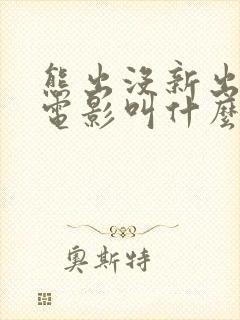 熊出沒新出
電影叫什麼
奧斯特